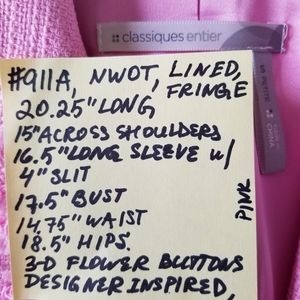 classiques entier
S PETITE
CHINA
#911A, NWOT, LINED,
FRINGE
20.25" LONG
15" ACROSS SHOULDERS
16.5" LONG SLEEVE W/
4" SLIT
17.5" BUST
14.75" WAIST
18.5" HIPS.
PINK
3-D FLOWER BUTTONS
DESIGNER INSPIRED,